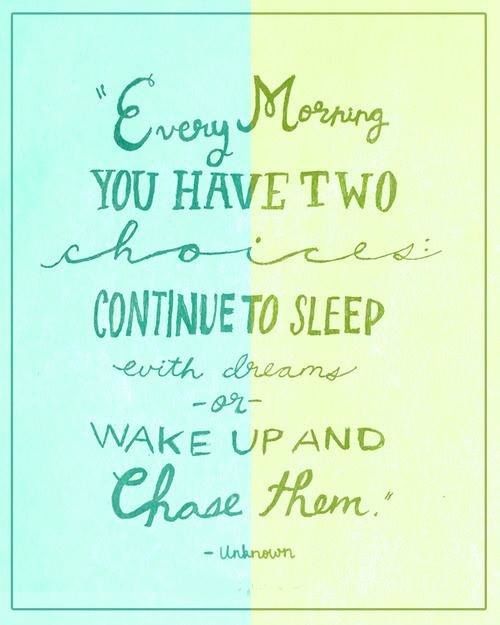 "Every Morning
YOU HAVE TWO
choices:
CONTINUE TO SLEEP
with dreams
-or-
WAKE UP AND
Chase them."
- Unknown